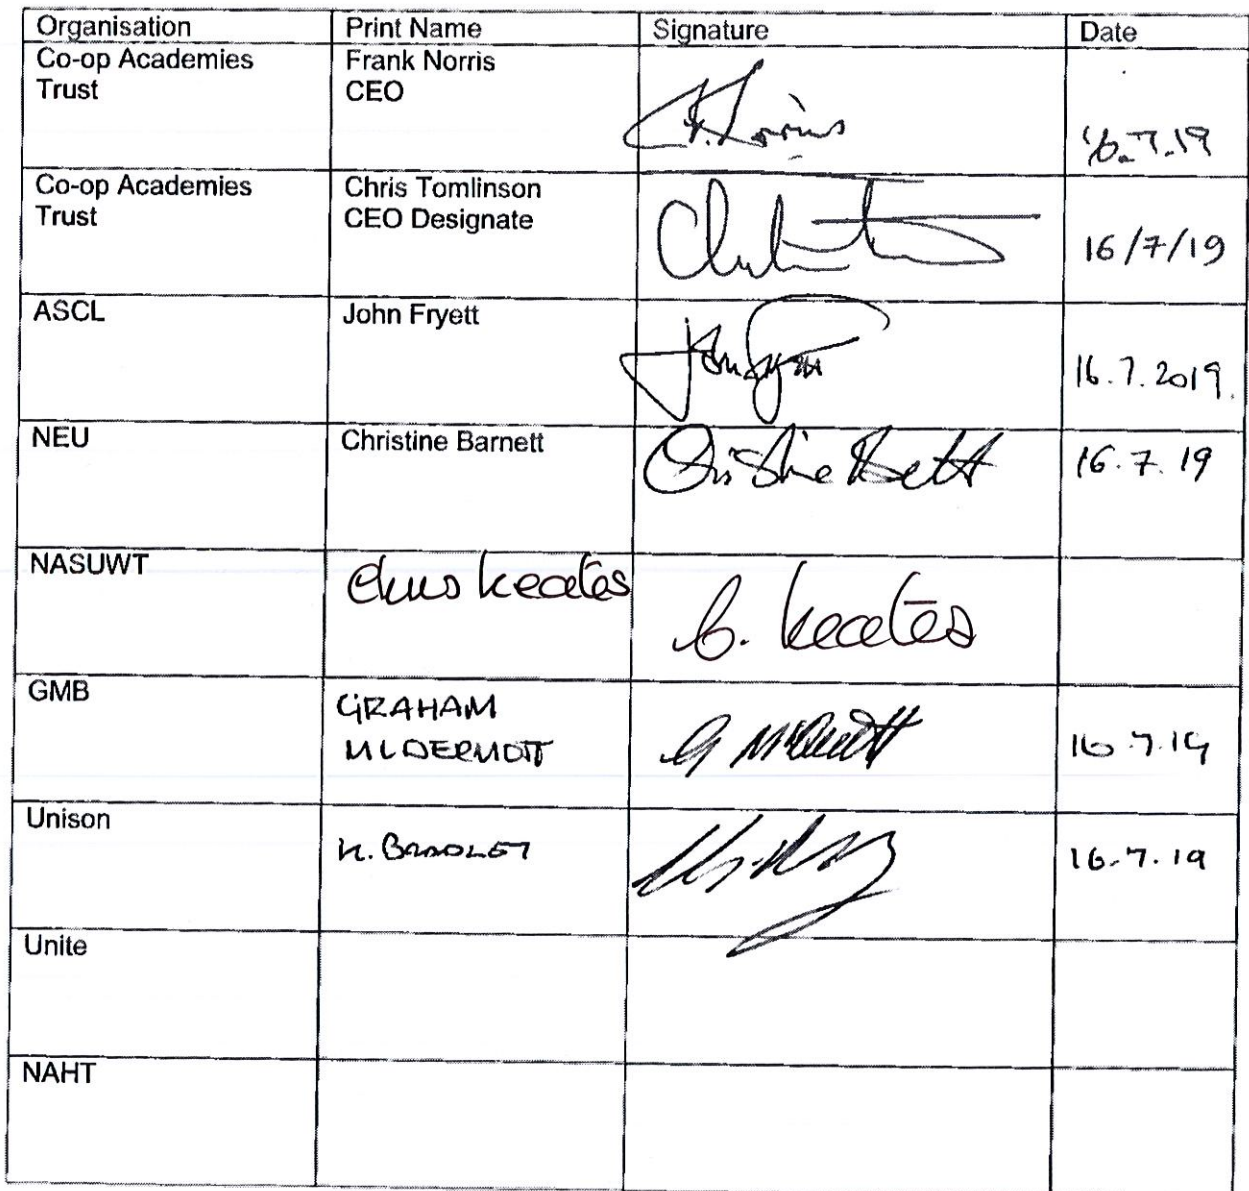 Organisation Print Name Signature Date
Co-op Academies Frank Norris
Trust CEO
F. Norris 16.7.19
Co-op Academies Chris Tomlinson
Trust CEO Designate
16/7/19
ASCL John Fryett
16.7.2019.
NEU Christine Barnett
Christine 16.7.19
NASUWT Chris Keates
C. Keates
GMB GRAHAM
MCDERMOTT
G McDermott 16.7.19
Unison K. BRADLEY 16.7.19
Unite
NAHT